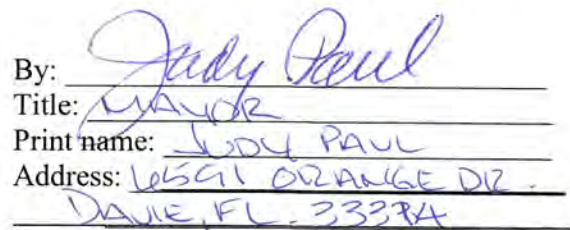 By: Judy Paul
Title: MAYOR
Print name: JUDY PAUL
Address: 6591 ORANGE DR.
DAVIE, FL. 33314